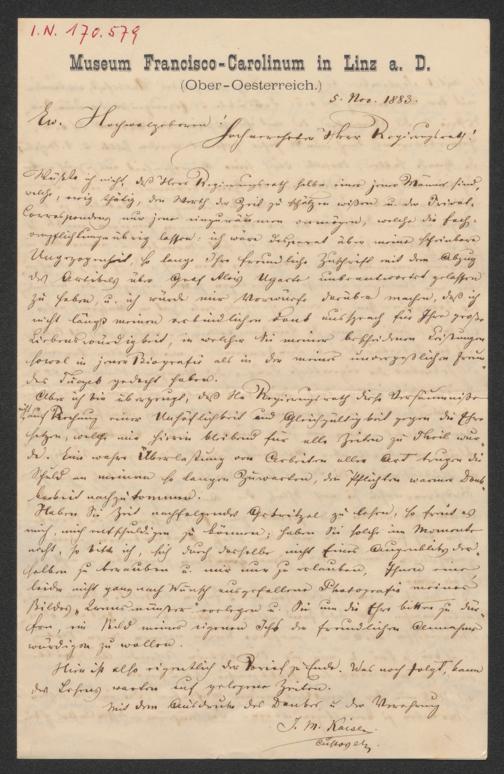 I.N. 170.579
Museum Francisco-Carolinum in Linz a. D.
(Ober-Oesterreich.)
5. Nov. 1883.
Ew. Hochwolgeboren!
Hochverehrter Herr Regierungsrath!
Wüßte ich nicht, daß Herr Regierungsrath selbst einer jener Männer sind,
welche, ewig thätig, den Werth der Zeit zu schätzen wißen u. der Privat-
Correspondenz nur jene einzuräumen vermögen, welche die
übrig lassen, ich wäre über meine scheinbare
Ungezogenheit, so lange Ihre freundliche Zuschrift mit dem Abzug
des Artikels über Graf Alois Ugarte unbeantwortet gelassen
zu haben, u. ich würde mir Vorwürfe darüber machen, daß ich
nicht längst meinen verbindlichen Dank aussprach für Ihre große
Liebenswürdigkeit, in welcher Sie meiner bescheidenen Leistungen
sowol in jener Biografie als in der meines unvergeßlichen
des gedacht haben.
Aber ich bin überzeugt, daß Herr Regierungsrath diese Versäumniße
nicht auf Rechnung einer Unhöflichkeit und Gleichgültigkeit gegen die Ehre
setzen, welche mir hierin bleibend für alle Zeiten zu Theil wur-
de. Eine wahre Überlastung von Arbeiten aller Art tragen die
Schuld an meinem so langen Zuwarten, den Pflichten warmer Dank-
barkeit nachzukommen.
Haben Sie Zeit nachfolgendes Gekritzel zu lesen, so freut es
mich, mich entschuldigen zu können; haben Sie solche im Momente
nicht, so bitte ich, sich durch dasselbe nicht Eines Augenblickes der-
selben zu berauben u. mir nur zu erlauben, Ihnen eine
leider nicht ganz nach Wunsch ausgefallene Photografie meines
Bildes „ vorlegen u. Sie um die Ehre bitten zu dür-
fen, ein Bild meines eigenen Ichs der freundlichen Annahme
würdigen zu wollen.
Hier ist also eigentlich der Brief zu Ende. Was noch folgt, kann
des Lesens warten auf gelegene Zeiten.
Mit dem Ausdrucke des Dankes u. der Verehrung
J. M. Kaiser